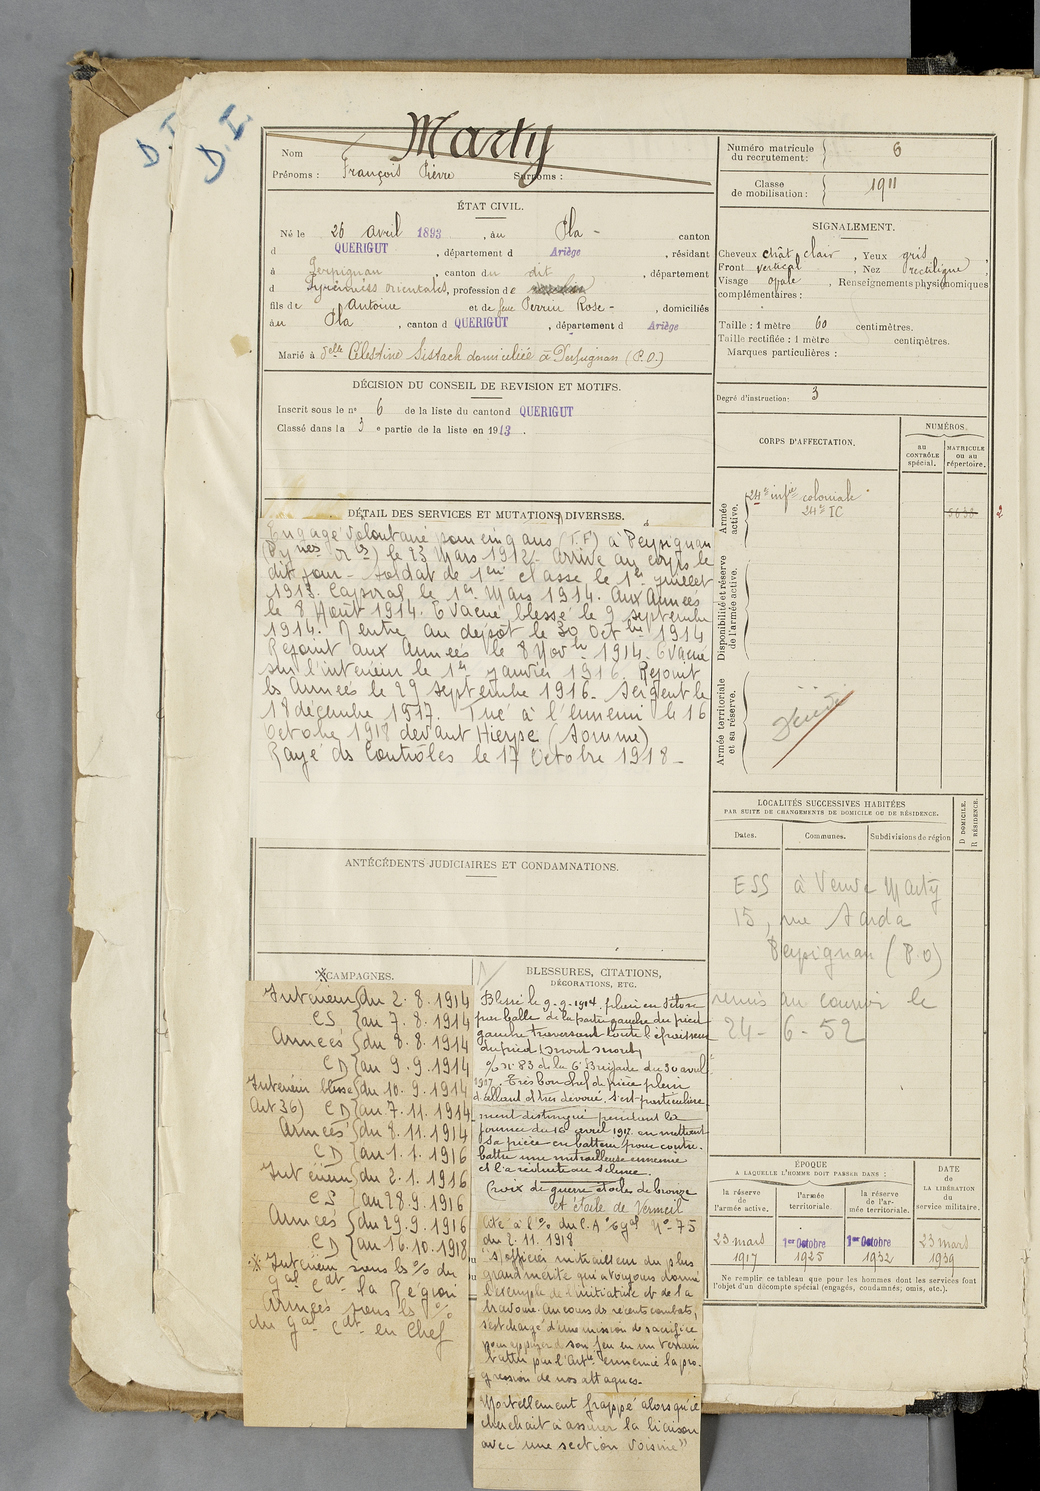 D. I
D. I
Nom Marty
Prénoms : François Pierre Surnoms :
ÉTAT CIVIL.
Né le 26 avril 1893, au Pla - canton
d QUERIGUT, département d Ariège, résidant
à Perpignan, canton du dit, département
d Pyrénnées orientales, profession de
fils de Antoine et de feue Perrin Rose -, domiciliés
au Pla, canton d QUERIGUT, département d Ariège
Marié à Delle Célestine Sistach domiciliée à Perpignan (P.O.)
DÉCISION DU CONSEIL DE REVISION ET MOTIFS.
Inscrit sous le no 6 de la liste du canton d QUERIGUT
Classé dans la 3 e partie de la liste en 1913.
DÉTAIL DES SERVICES ET MUTATIONS DIVERSES.
Engagé Volontaire pour cinq ans (T.F) à Perpignan
(Pynées Or les) le 23 Mars 1912. Arrivé au corps le
dit jour - Soldat de 1ère classe le 1er juillet
1913. Caporal le 1er Mars 1914. Aux Armées
le 8 Août 1914. Evacué blessé le 9 septembre
1914. Rentré au dépôt le 30 Octbre 1914
Rejoint aux Armées le 8 Novbre 1914. Evacué
sur l'intérieur le 1er janvier 1916. Rejoint
les Armées le 29 septembre 1916. Sergent le
18 décembre 1917. Tué à l'ennemi le 16
Octobre 1918 devant Hierpe (Somme)
Rayé des Contrôles le 17 Octobre 1918 -
ANTÉCÉDENTS JUDICIAIRES ET CONDAMNATIONS.
CAMPAGNES.
Intérieur {du 2.8.1914
CS {au 7.8.1914
Armées {du 8.8.1914
CD {au 9.9.1914
Intérieur blessé {du 10.9.1914
Art 36) CD {au 7.11.1914
Armées {du 8.11.1914
CD {au 1.1.1916
Intérieur {du 2.1.1916
CS {au 28.9.1916
Armées {du 29.9.1916
CD {au 16.10.1918
* Intérieur sous les % du
Gal Cdt la Région
Armées sous les %
du Gal Cdt en Chef
BLESSURES, CITATIONS,
DÉCORATIONS, ETC.
Blessé le 9-9-1914. plaie en séton
par balle de la partie gauche du pied
gauche traversant toute l'épaisseur
du pied
% n° 83 de la 6e Brigade du 30 avril
1917. Très bon chef de pièce plein
d'allant et très dévoué. s'est particulière
ment distingué pendant la
journée du 16 avril 1917 en mettant
sa pièce en batterie pour contre
battre une mitrailleuse ennemie
et l'a réduite au silence.
Croix de guerre étoile de bronze
et étoile de Vermeil
Cité à l'% du C.A. Cgal N° 75
du 2.11.1918
"S/officier mitrailleur du plus
grand mérite qui a toujours donné
l'exemple de l'initiative et de la
bravoure. Au cours de récents combats,
s'est chargé d'une mission de sacrifice
pour appuyer de son feu en un terrain
battu par l'Artie ennemie la pro-
gression de nos attaques.
Mortellement frappé alors qu'il
cherchait à assurer la liaison
avec une section voisine"
Numéro matricule du recrutement : 6
Classe de mobilisation : 1911
SIGNALEMENT.
Cheveux chât. clair, Yeux gris
Front vertical, Nez rectiligne ;
Visage ovale, Renseignements physionomiques
complémentaires :
Taille : 1 mètre 60 centimètres.
Taille rectifiée : 1 mètre centimètres.
Marques particulières :
Degré d'instruction : 3
CORPS D'AFFECTATION.
NUMÉROS.
au CONTRÔLE spécial.
MATRICULE ou au répertoire.
Armée active.
24e infie coloniale
24e IC
2
Disponibilité et réserve de l'armée active.
Armée territoriale et sa réserve.
LOCALITÉS SUCCESSIVES HABITÉES
PAR SUITE DE CHANGEMENTS DE DOMICILE OU DE RÉSIDENCE.
Dates. Communes. Subdivisions de région
D DOMICILE.
R RÉSIDENCE.
ESS à Veuve Marty
15, rue Sarda
Perpignan (P.O)
remis au courrier le
24-6-52
ÉPOQUE
A LAQUELLE L'HOMME DOIT PASSER DANS :
la réserve de l'armée active.
l'armée territoriale.
la réserve de l'armée territoriale.
DATE de LA LIBÉRATION du service militaire.
23 mars 1917
1er Octobre 1925
1er Octobre 1932
23 mars 1939
Ne remplir ce tableau que pour les hommes dont les services font
l'objet d'un décompte spécial (engagés, condamnés; omis, etc.).